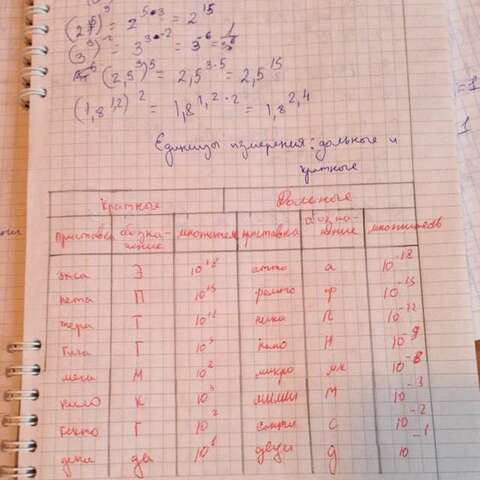 (2⁵)³ = 2⁵·³ = 2¹⁵
= 3³·⁻² = 3⁻⁶ = 1/3⁶
(2,5³)⁵ = 2,5³·⁵ = 2,5¹⁵
(1,8¹,²)² = 1,8¹,²·² = 1,8²,⁴
=1
1
Единицы измерения: дольные и
кратные
кратные дольные
приставка обозна- множитель приставка обозна- множитель
чение чение
экса Э 10¹⁸ атто а 10⁻¹⁸
пета П 10¹⁵ фемто ф 10⁻¹⁵
тера Т 10¹² пико П 10⁻¹²
гига Г нано Н 10⁻⁹
мега М микро мк
кило К 10³ милли М 10⁻³
гекто Г 10² санти С 10⁻²
дека да 10¹ деци д 10⁻¹